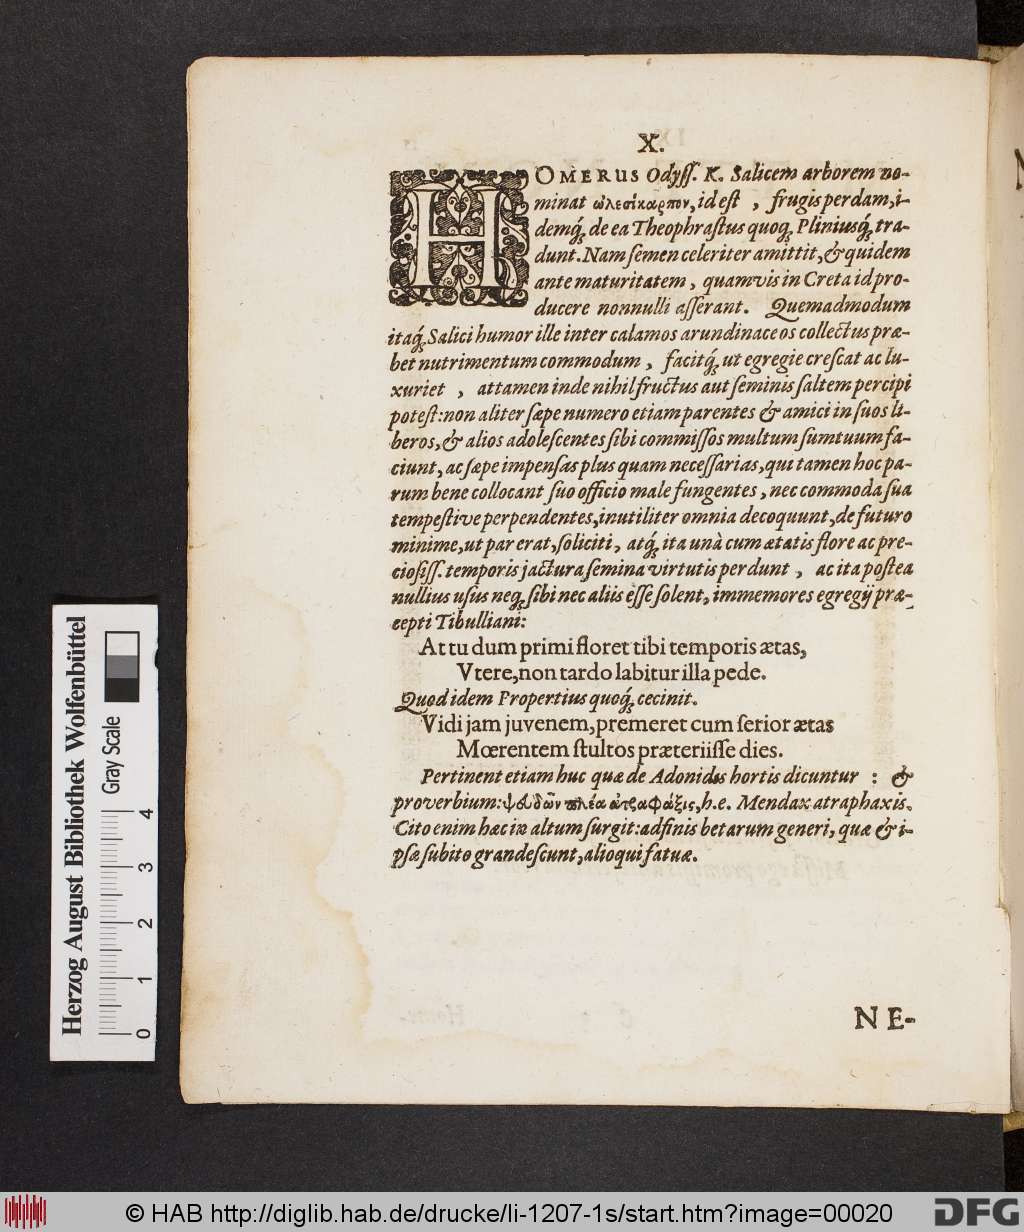 X.
HOMERUS Odyſſ. K. Salicem arborem no-
minat ὠλεσίκαρπον, id eſt, frugisperdam, i-
demq́ʒ de ea Theophraſtus quoq́ʒ Pliniusq́ʒ tra-
dunt. Nam ſemen celeriter amittit, & quidem
ante maturitatem, quamvis in Creta id pro-
ducere nonnulli aſſerant. Quemadmodum
itaq́ʒ Salici humor ille inter calamos arundinaceos collectus præ-
bet nutrimentum commodum, facitq́ʒ ut egregie creſcat ac lu-
xuriet, attamen inde nihil fructus aut ſeminis ſaltem percipi
poteſt: non aliter ſæpe numero etiam parentes & amici in ſuos li-
beros, & alios adoleſcentes ſibi commiſſos multum ſumtuum fa-
ciunt, ac ſæpe impenſas plus quam neceſſarias, qui tamen hoc pa-
rum bene collocant ſuo officio male fungentes, nec commoda ſua
tempeſtive perpendentes, inutiliter omnia decoquunt, de futuro
minime, ut par erat, ſoliciti, atq́ʒ ita unà cum ætatis flore ac pre-
cioſiſſ. temporis jactura ſemina virtutis perdunt, ac ita poſtea
nullius uſus neq́ʒ ſibi nec aliis eſſe ſolent, immemores egregij præ-
cepti Tibulliani:
At tu dum primi floret tibi temporis ætas,
Vtere, non tardo labitur illa pede.
Quod idem Propertius quoq́ʒ cecinit.
Vidi jam juvenem, premeret cum ſerior ætas
Mœrentem ſtultos præteriiſſe dies.
Pertinent etiam huc quæ de Adonidis hortis dicuntur: &
proverbium: πλέα ἀτραφάξις, h.e. Mendax atraphaxis.
Cito enim hæc in altum ſurgit: adfinis betarum generi, quæ & i-
pſæ ſubito grandeſcunt, alioqui fatuæ.
NE-
Herzog August Bibliothek Wolfenbüttel
Gray Scale
0 1 2 3 4
© HAB http://diglib.hab.de/drucke/li-1207-1s/start.htm?image=00020
DFG